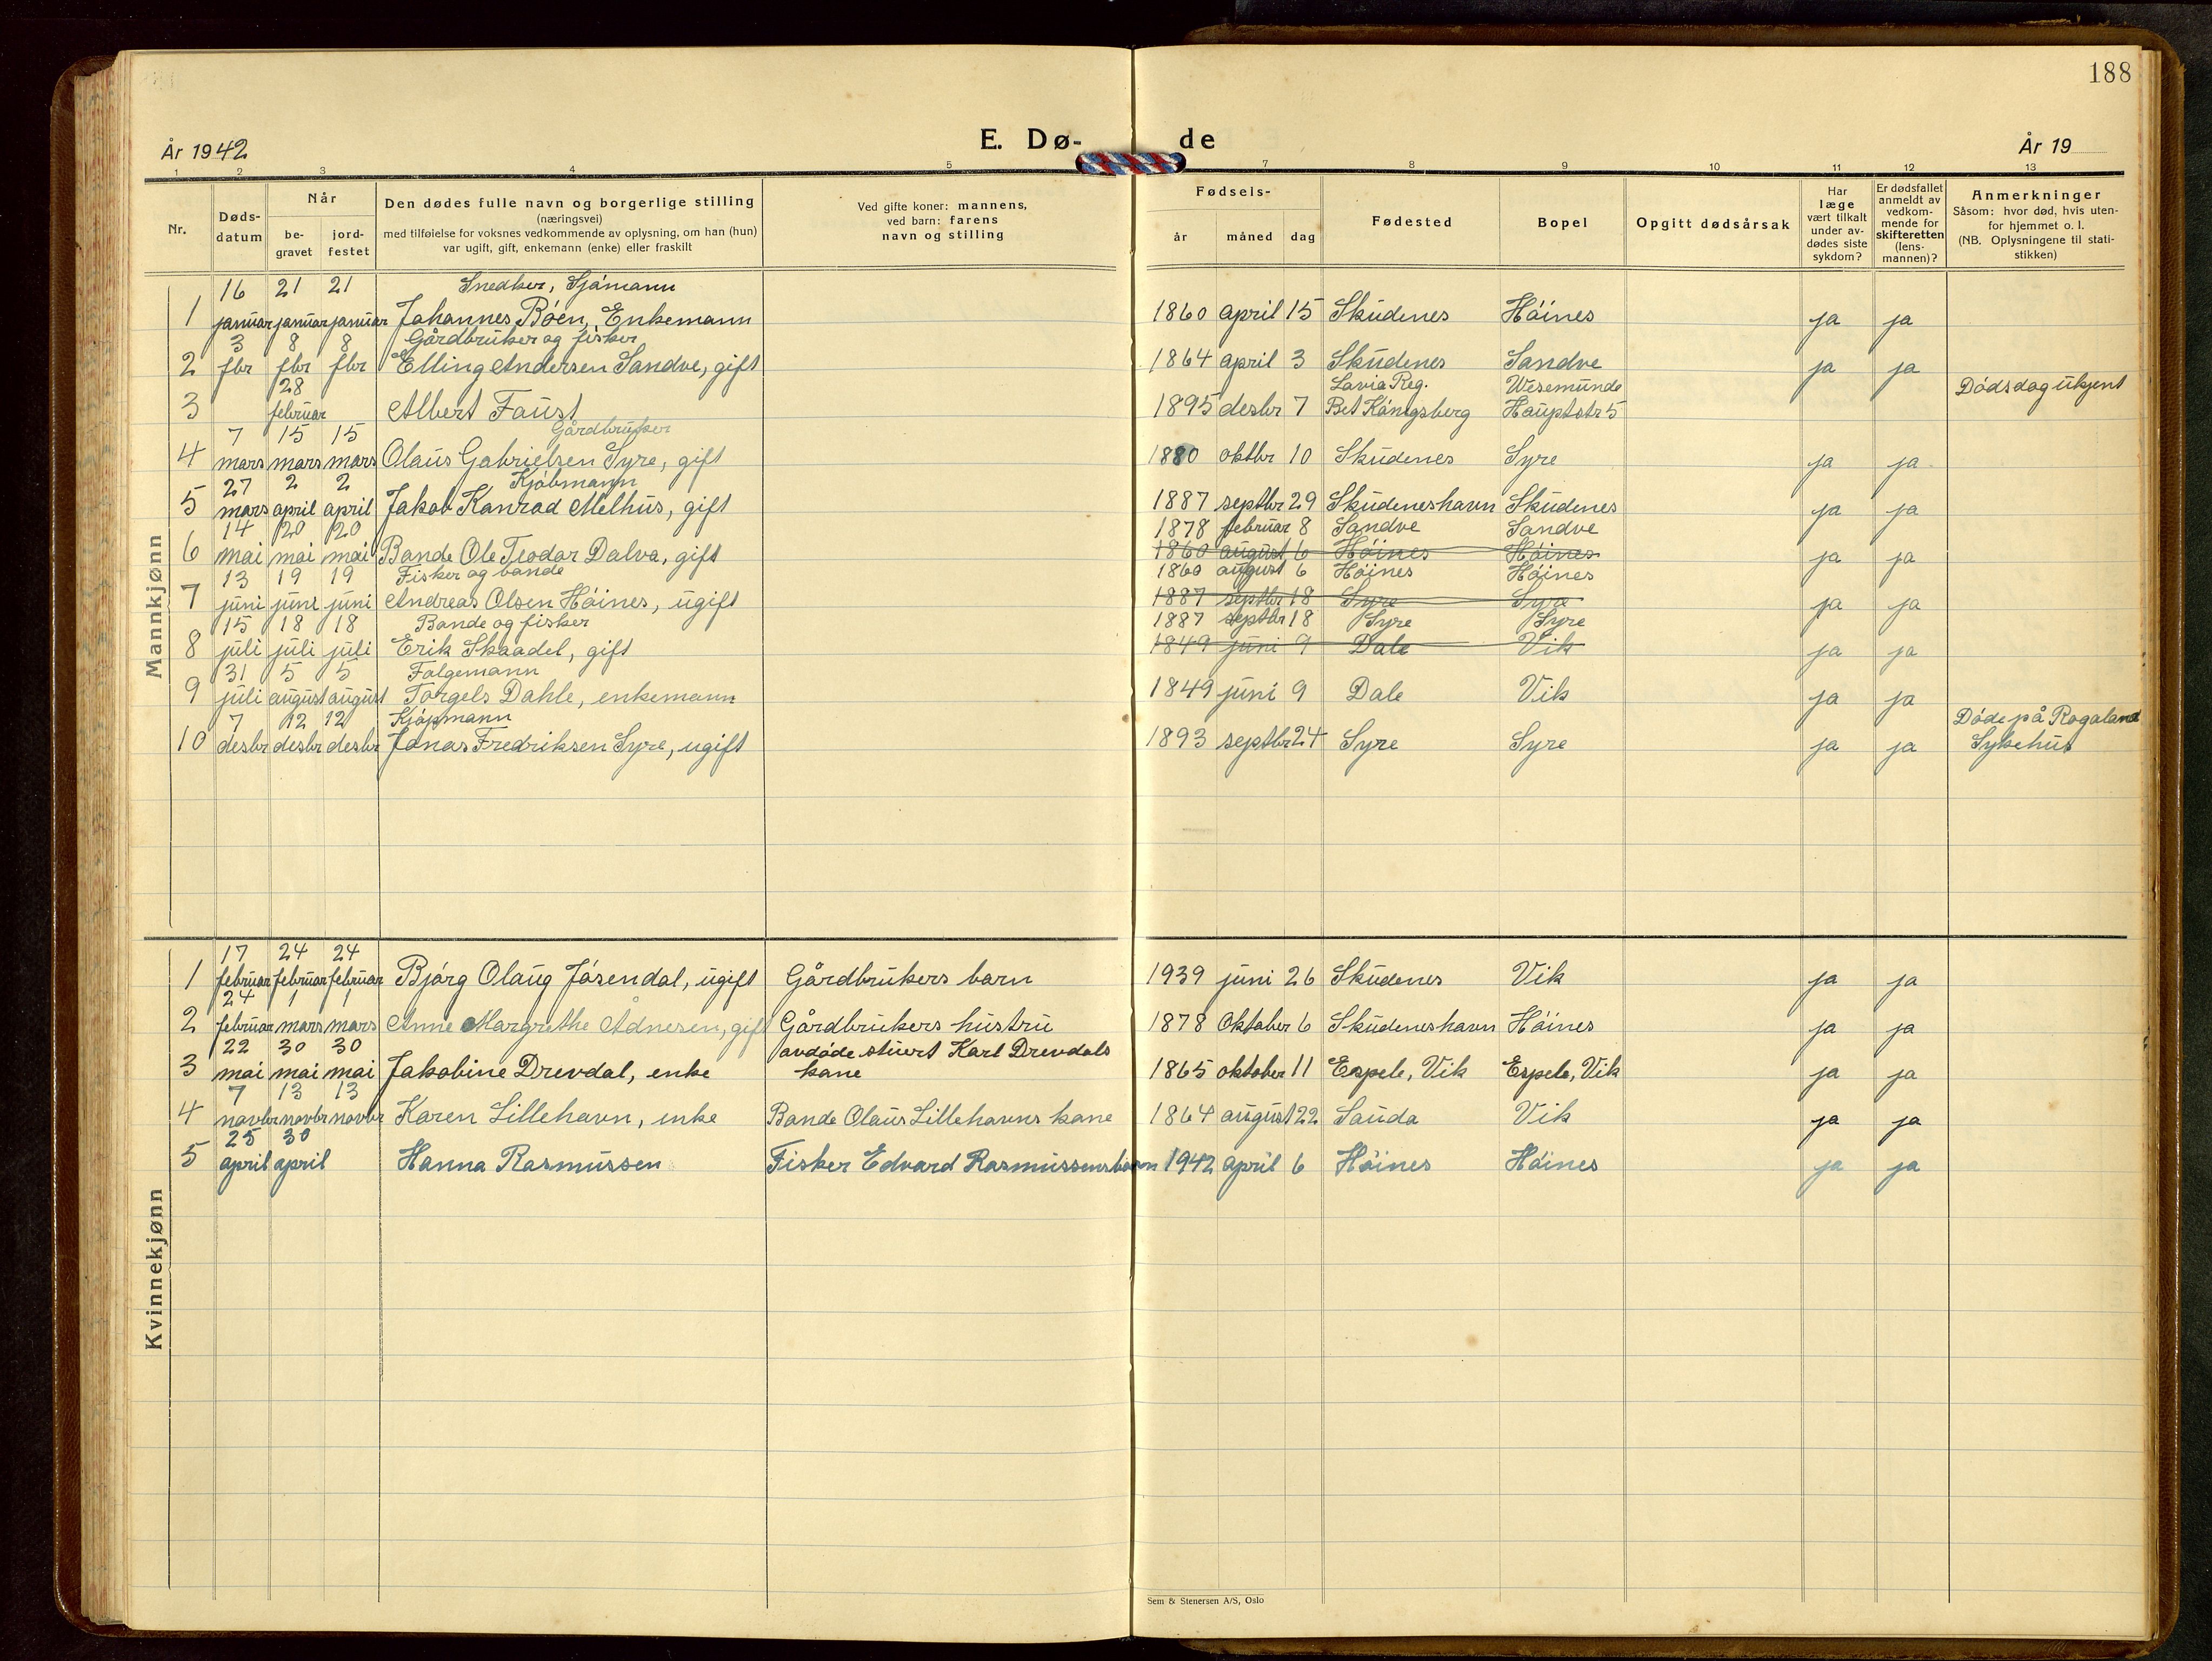 188
År 1942
E. Dø-
de
År 19
1 2 3 4 5 7 8 9 10 11 12 13
Nr.
Døds-
datum
Når
be-
gravet
jord-
festet
Den dødes fulle navn og borgerlige stilling
(næringsvei)
med tilføielse for voksnes vedkommende av oplysning, om han (hun)
var ugift, gift, enkemann (enke) eller fraskilt
Ved gifte koner: mannens,
ved barn: farens
navn og stilling
Fødsels-
år måned dag
Fødested
Bopel
Opgitt dødsårsak
Har
læge
vært tilkalt
under av-
dødes siste
sykdom?
Er dødsfallet
anmeldt av
vedkom-
mende for
skifteretten
(lens-
mannen)?
Anmerkninger
Såsom: hvor død, hvis uten-
for hjemmet o. l.
(NB. Oplysningene til stati-
stikken)
Mannkjønn
16 21 21 Snedker, Sjømann
1 januar januar januar Johannes Bøen, Enkemann 1860 april 15 Skudenes Høines ja ja
3 8 8 Gårdbruker og fisker
2 fbr fbr fbr Elling Andersen Sandve, gift 1864 april 3 Skudenes Sandve ja ja
28 Lavia Reg. Wesemünde Dødsdag ukjent
3 februar Albert Faust 1895 desbr 7 Bet Königsberg Hauptstr 5
7 15 15 Gårdbruker
4 mars mars mars Olaus Gabrielsen Syre, gift 1880 oktbr 10 Skudenes Syre ja ja
27 2 2 Kjøbmann
5 mars april april Jakob Konrad Melhus, gift 1887 septbr 29 Skudeneshavn Skudenes ja ja
14 20 20 1878 februar 8 Sandve Sandve
6 mai mai mai Bonde Ole Teodor Dalva, gift 1860 august 6 Høines Høines ja ja
13 19 19 Fisker og bonde 1860 august 6 Høines Høines
7 juni juni juni Andreas Olsen Høines, ugift 1887 septbr 18 Syre Syre ja ja
15 18 18 Bonde og fisker 1887 septbr 18 Syre Syre
8 juli juli juli Erik Skaadel, gift 1849 juni 9 Dale Vik ja ja
31 5 5 Følgemann
9 juli august august Torgels Dahle, enkemann 1849 juni 9 Dale Vik ja ja
7 12 12 Kjøpmann Døde på Rogaland
10 desbr desbr desbr Jonas Fredriksen Syre, ugift 1893 septbr 24 Syre Syre ja ja Sykehus
Kvinnekjønn
17 24 24
1 februar februar februar Bjørg Olaug Jøsendal, ugift Gårdbrukers barn 1939 juni 26 Skudenes Vik ja ja
24 1 1
2 februar mars mars Anne Margrethe Ådnesen, gift Gårdbrukers hustru 1878 Oktober 6 Skudeneshavn Høines ja ja
22 30 30 avdøde stuert Karl Drevdals
3 mai mai mai Jakobine Drevdal, enke kone 1865 oktober 11 Espele, Vik Espele, Vik ja ja
7 13 13
4 novbr novbr novbr Karen Lillehavn, enke Bonde Olaus Lillehavns kone 1864 august 22 Sauda Vik ja ja
25 30
5 april april Hanna Rasmussen Fisker Edvard Rasmussens barn 1942 april 6 Høines Høines ja ja
Sem & Stenersen A/S, Oslo